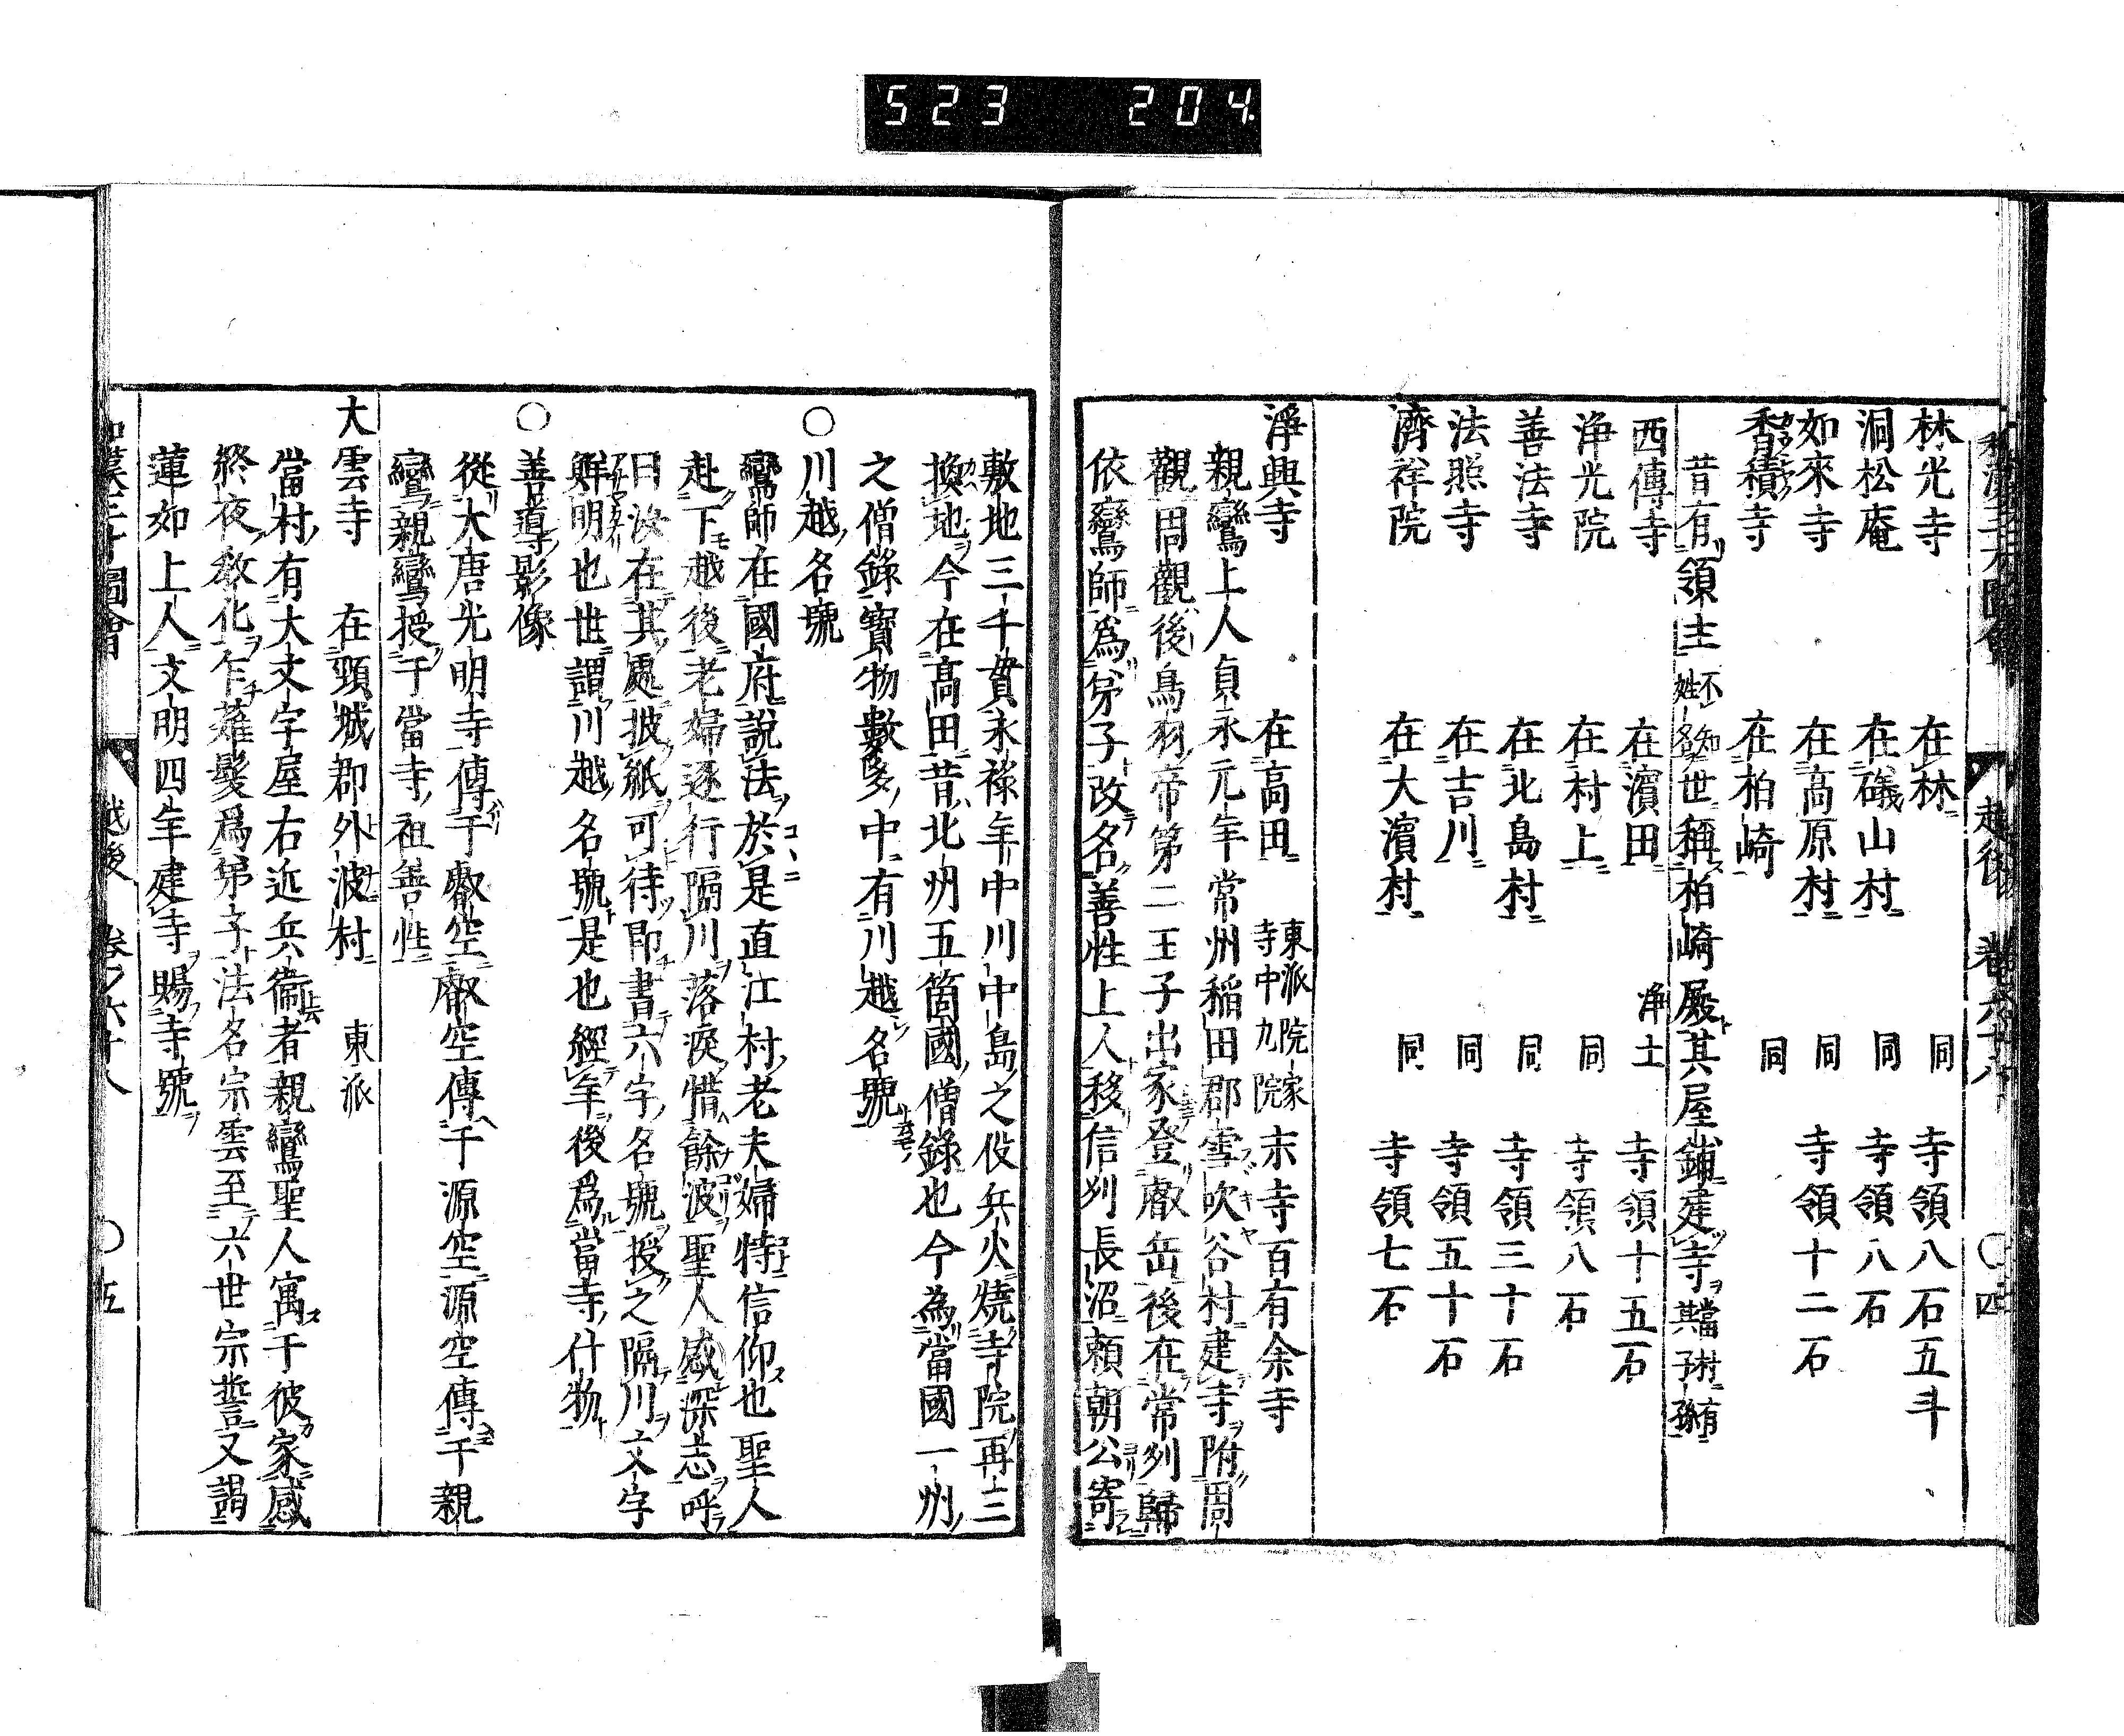 523 204
林光寺 在林 同 寺領八石五斗
洞松庵 在礒山村 同 寺領八石
如來寺 在高原村 同 寺領十二石
香積寺 在柏崎 同
昔有領主不知姓名世稱柏崎殿其屋鋪建寺當村有其子孫
西傳寺 在濵田 浄土 寺領十五石
浄光院 在村上 同 寺領八石
善法寺 在北島村 同 寺領三十石
法照寺 在吉川 同 寺領五十石
濟祥院 在大濵村 同 寺領七石
淨興寺 在高田 東派院家寺中九院 末寺百有余寺
親鸞上人貞永元年常州稲田郡雪吹谷村建寺附周
觀周觀後鳥羽帝第二王子出家登叡岳後在常州歸
依鸞師爲弟子改名善性上人移信州長沼頼朝公寄
敷地三千貫永禄年中川中島之役兵火焼寺院再三
換地今在髙田昔北州五箇國僧錄也今為當國一州
之僧錄寳物數多中有川越名號
○川越名號
鸞師在國府說法於是直江村老夫婦特信仰也聖人
赴下越後老婦逐行隔川落淚惜餘波聖人感深志呼
曰汝在其處披紙可待即書六字名號授之隔川文字
鮮明也世謂川越名號是也經年後爲當寺什物
○善導影像
從大唐光明寺傳于叡空叡空傳于源空源空傳于親
鸞親鸞授于當寺祖善性
大雲寺 在頸城郡外波村 東派
當村有大文字屋右近兵衞者親鸞聖人寓于彼家感
終夜敎化乍薙髮爲弟子法名宗雲至六世宗誓又謁
蓮如上人文明四年建寺賜寺號
越後 卷之六十八 ○五